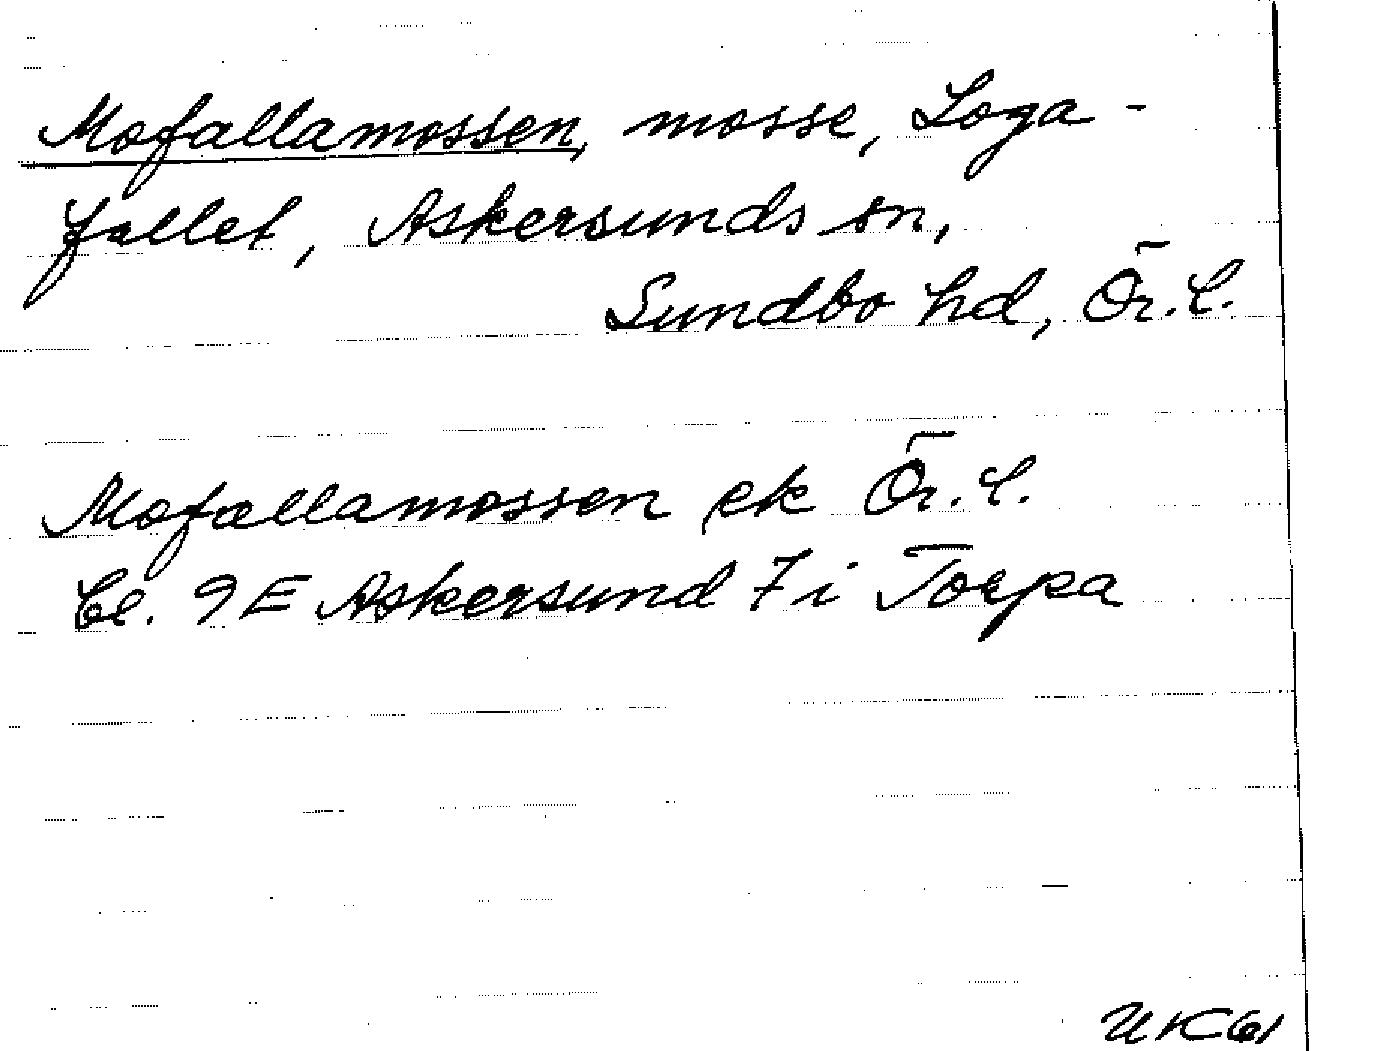 Mofallamossen, mosse, Loga-
fallet, Askersunds sn,
Sundbo hd, Ör. l.
Mofallamossen ek Ör. l.
bl. 9E Askersund 7i Torpa
UK61